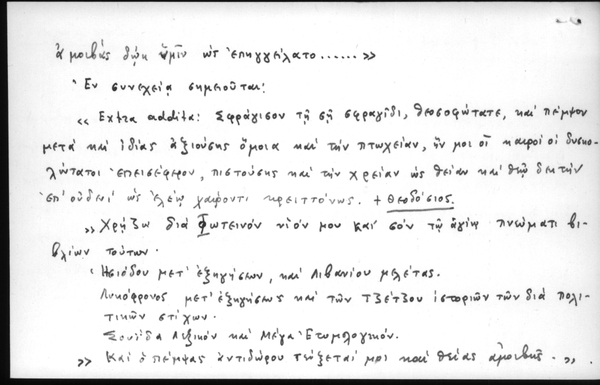 ἀμοιβὰς δῴη ὑμῖν ὡς ἐπηγγείλατο...... »
Ἐν συνεχείᾳ σημειοῦται:
« Extra addita: Σφράγισον τῇ σῇ σφραγῖδι, θεοσοφώτατε, καὶ πέμψον
μετὰ καὶ ἰδίας ἀξιούσης ὅμοια καὶ τὴν πτωχείαν, ἥν μοι οἱ καιροὶ οἱ δυσκο-
λώτατοι ἐπεισέφερον, πιστούσης καὶ τὴν χρείαν ὡς θείαν καὶ θεῷ δεκτὴν
ἐπ' οὐδενὶ ὡς ἐλέῳ χαίροντι κρειττόνως. + Θεοδόσιος.
» Χρῄζω διὰ Φωτεινὸν υἱόν μου καὶ σὸν τῷ ἁγίῳ πνεύματι βι-
βλίων τούτων.
Ἡσιόδου μετ' ἐξηγήσεων, καὶ Λιβανίου μελέτας.
Λυκόφρονος μετ' ἐξηγήσεως καὶ τῶν Τζέτζου ἱστοριῶν τῶν διὰ πολι-
τικῶν στίχων.
Σουΐδα Λεξικὸν καὶ Μέγα Ἐτυμολογικόν.
» Καὶ ὁ πέμψας ἀντιδώρου τεύξεταί μοι καὶ θείας ἀμοιβῆς. »